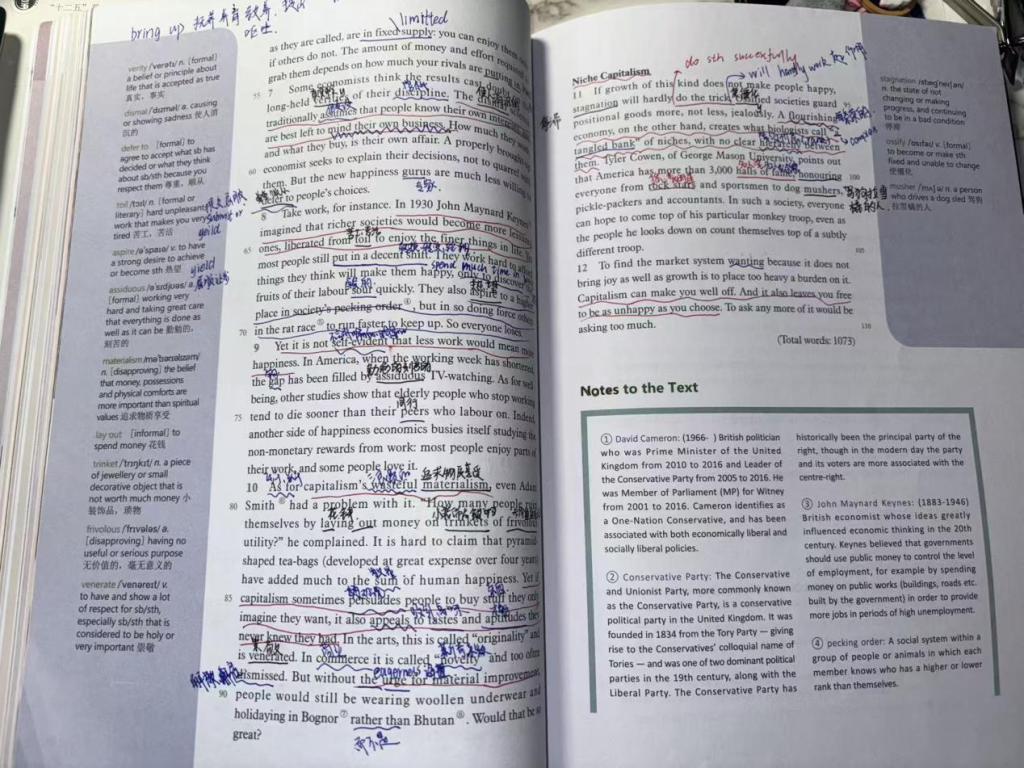 "十二五"
bring up 抚养 教育
呕吐
limitted
verity /ˈverəti/ n. [formal]
a belief or principle about
life that is accepted as true
真实，事实
dismal /ˈdɪzməl/ a. causing
or showing sadness 使人消
沉的
defer to [formal] to
agree to accept what sb has
decided or what they think
about sb/sth because you
respect them 尊重，顺从
toil /tɔɪl/ n. [formal or
literary] hard unpleasant
work that makes you very
tired 苦工，苦活
aspire /əˈspaɪə/ v. to have
a strong desire to achieve
or become sth 热望
yield
assiduous /əˈsɪdjuəs/ a.
[formal] working very
hard and taking great care
that everything is done as
well as it can be 勤勉的，
刻苦的
materialism /məˈtɪəriəlɪzəm/
n. [disapproving] the belief
that money, possessions
and physical comforts are
more important than spiritual
values 追求物质享受
lay out [informal] to
spend money 花钱
trinket /ˈtrɪŋkɪt/ n. a piece
of jewellery or small
decorative object that is
not worth much money 小
装饰品，琐物
frivolous /ˈfrɪvələs/ a.
[disapproving] having no
useful or serious purpose
无价值的，毫无意义的
venerate /ˈvenəreɪt/ v.
to have and show a lot
of respect for sb/sth,
especially sb/sth that is
considered to be holy or
very important 崇敬
as they are called, are in fixed supply: you can enjoy them
if others do not. The amount of money and effort required
grab them depends on how much your rivals are putting
55 7 Some economists think the results cast
long-held verities of their discipline. The
traditionally assumes that people know their own
are best left to mind their own business. How much they
and what they buy, is their own affair. A properly brought
60 economist seeks to explain their decisions, not to quarrel
them. But the new happiness gurus are much less willing
defer to people's choices.
8 Take work, for instance. In 1930 John Maynard Keynes
imagined that richer societies would become more
65 ones, liberated from toil to enjoy the finer things in life.
most people still put in a decent shift. They work hard to afford
spend much time in
things they think will make them happy, only to discover
fruits of their labour sour quickly. They also aspire to a
place in society's pecking order④, but in so doing force others
70 in the rat race⑤ to run faster to keep up. So everyone loses.
9 Yet it is not self-evident that less work would mean more
happiness. In America, when the working week has shortened,
the gap has been filled by assiduous TV-watching. As for well
being, other studies show that elderly people who stop working
75 tend to die sooner than their peers who labour on. Indeed
another side of happiness economics busies itself studying the
non-monetary rewards from work: most people enjoy parts of
their work, and some people love it.
10 As for capitalism's wasteful materialism, even Adam
80 Smith⑥ had a problem with it. "How many people
themselves by laying out money on trinkets of frivolous
utility?" he complained. It is hard to claim that pyramid-
shaped tea-bags (developed at great expense over four years)
have added much to the sum of human happiness. Yet if
85 capitalism sometimes persuades people to buy stuff they only
imagine they want, it also appeals to tastes and aptitudes they
never knew they had. In the arts, this is called "originality" and
is venerated. In commerce it is called "novelty" and too often
dismissed. But without the urge for material improvement,
eagerness
90 people would still be wearing woollen underwear and
holidaying in Bognor⑦ rather than Bhutan⑧. Would that be so
great?
而不是
do sth successfully
will hardly work
Niche Capitalism
11 If growth of this kind does not make people happy,
stagnation will hardly do the trick. societies guard
positional goods more, not less, jealously. A flourishing
economy, on the other hand, creates what biologists call
tangled bank" of niches, with no clear hierarchy between
them. Tyler Cowen, of George Mason University, points out
that America has more than 3,000 halls of fame, honouring
everyone from rock stars and sportsmen to dog mushers,
pickle-packers and accountants. In such a society, everyone
can hope to come top of his particular monkey troop, even as
the people he looks down on count themselves top of a subtly
different troop.
12 To find the market system wanting because it does not
bring joy as well as growth is to place too heavy a burden on it.
Capitalism can make you well off. And it also leaves you free
to be as unhappy as you choose. To ask any more of it would be
asking too much.
95
100
105
110
(Total words: 1073)
stagnation /stæɡˈneɪʃən/
n. the state of not
changing or making
progress, and continuing
to be in a bad condition
停滞
ossify /ˈɒsɪfaɪ/ v. to
become or make sth
fixed and unable to change
使僵化
musher /ˈmʌʃə/ n. a person
who drives a dog sled 驾狗
拉雪橇的人
Notes to the Text
① David Cameron: (1966- ) British politician
who was Prime Minister of the United
Kingdom from 2010 to 2016 and Leader of
the Conservative Party from 2005 to 2016. He
was Member of Parliament (MP) for Witney
from 2001 to 2016. Cameron identifies as
a One-Nation Conservative, and has been
associated with both economically liberal and
socially liberal policies.
② Conservative Party: The Conservative
and Unionist Party, more commonly known
as the Conservative Party, is a conservative
political party in the United Kingdom. It was
founded in 1834 from the Tory Party — giving
rise to the Conservatives' colloquial name of
Tories — and was one of two dominant political
parties in the 19th century, along with the
Liberal Party. The Conservative Party has
historically been the principal party of the
right, though in the modern day the party
and its voters are more associated with the
centre-right.
③ John Maynard Keynes: (1883-1946)
British economist whose ideas greatly
influenced economic thinking in the 20th
century. Keynes believed that governments
should use public money to control the level
of employment, for example by spending
money on public works (buildings, roads etc.
built by the government) in order to provide
more jobs in periods of high unemployment.
④ pecking order: A social system within a
group of people or animals in which each
member knows who has a higher or lower
rank than themselves.